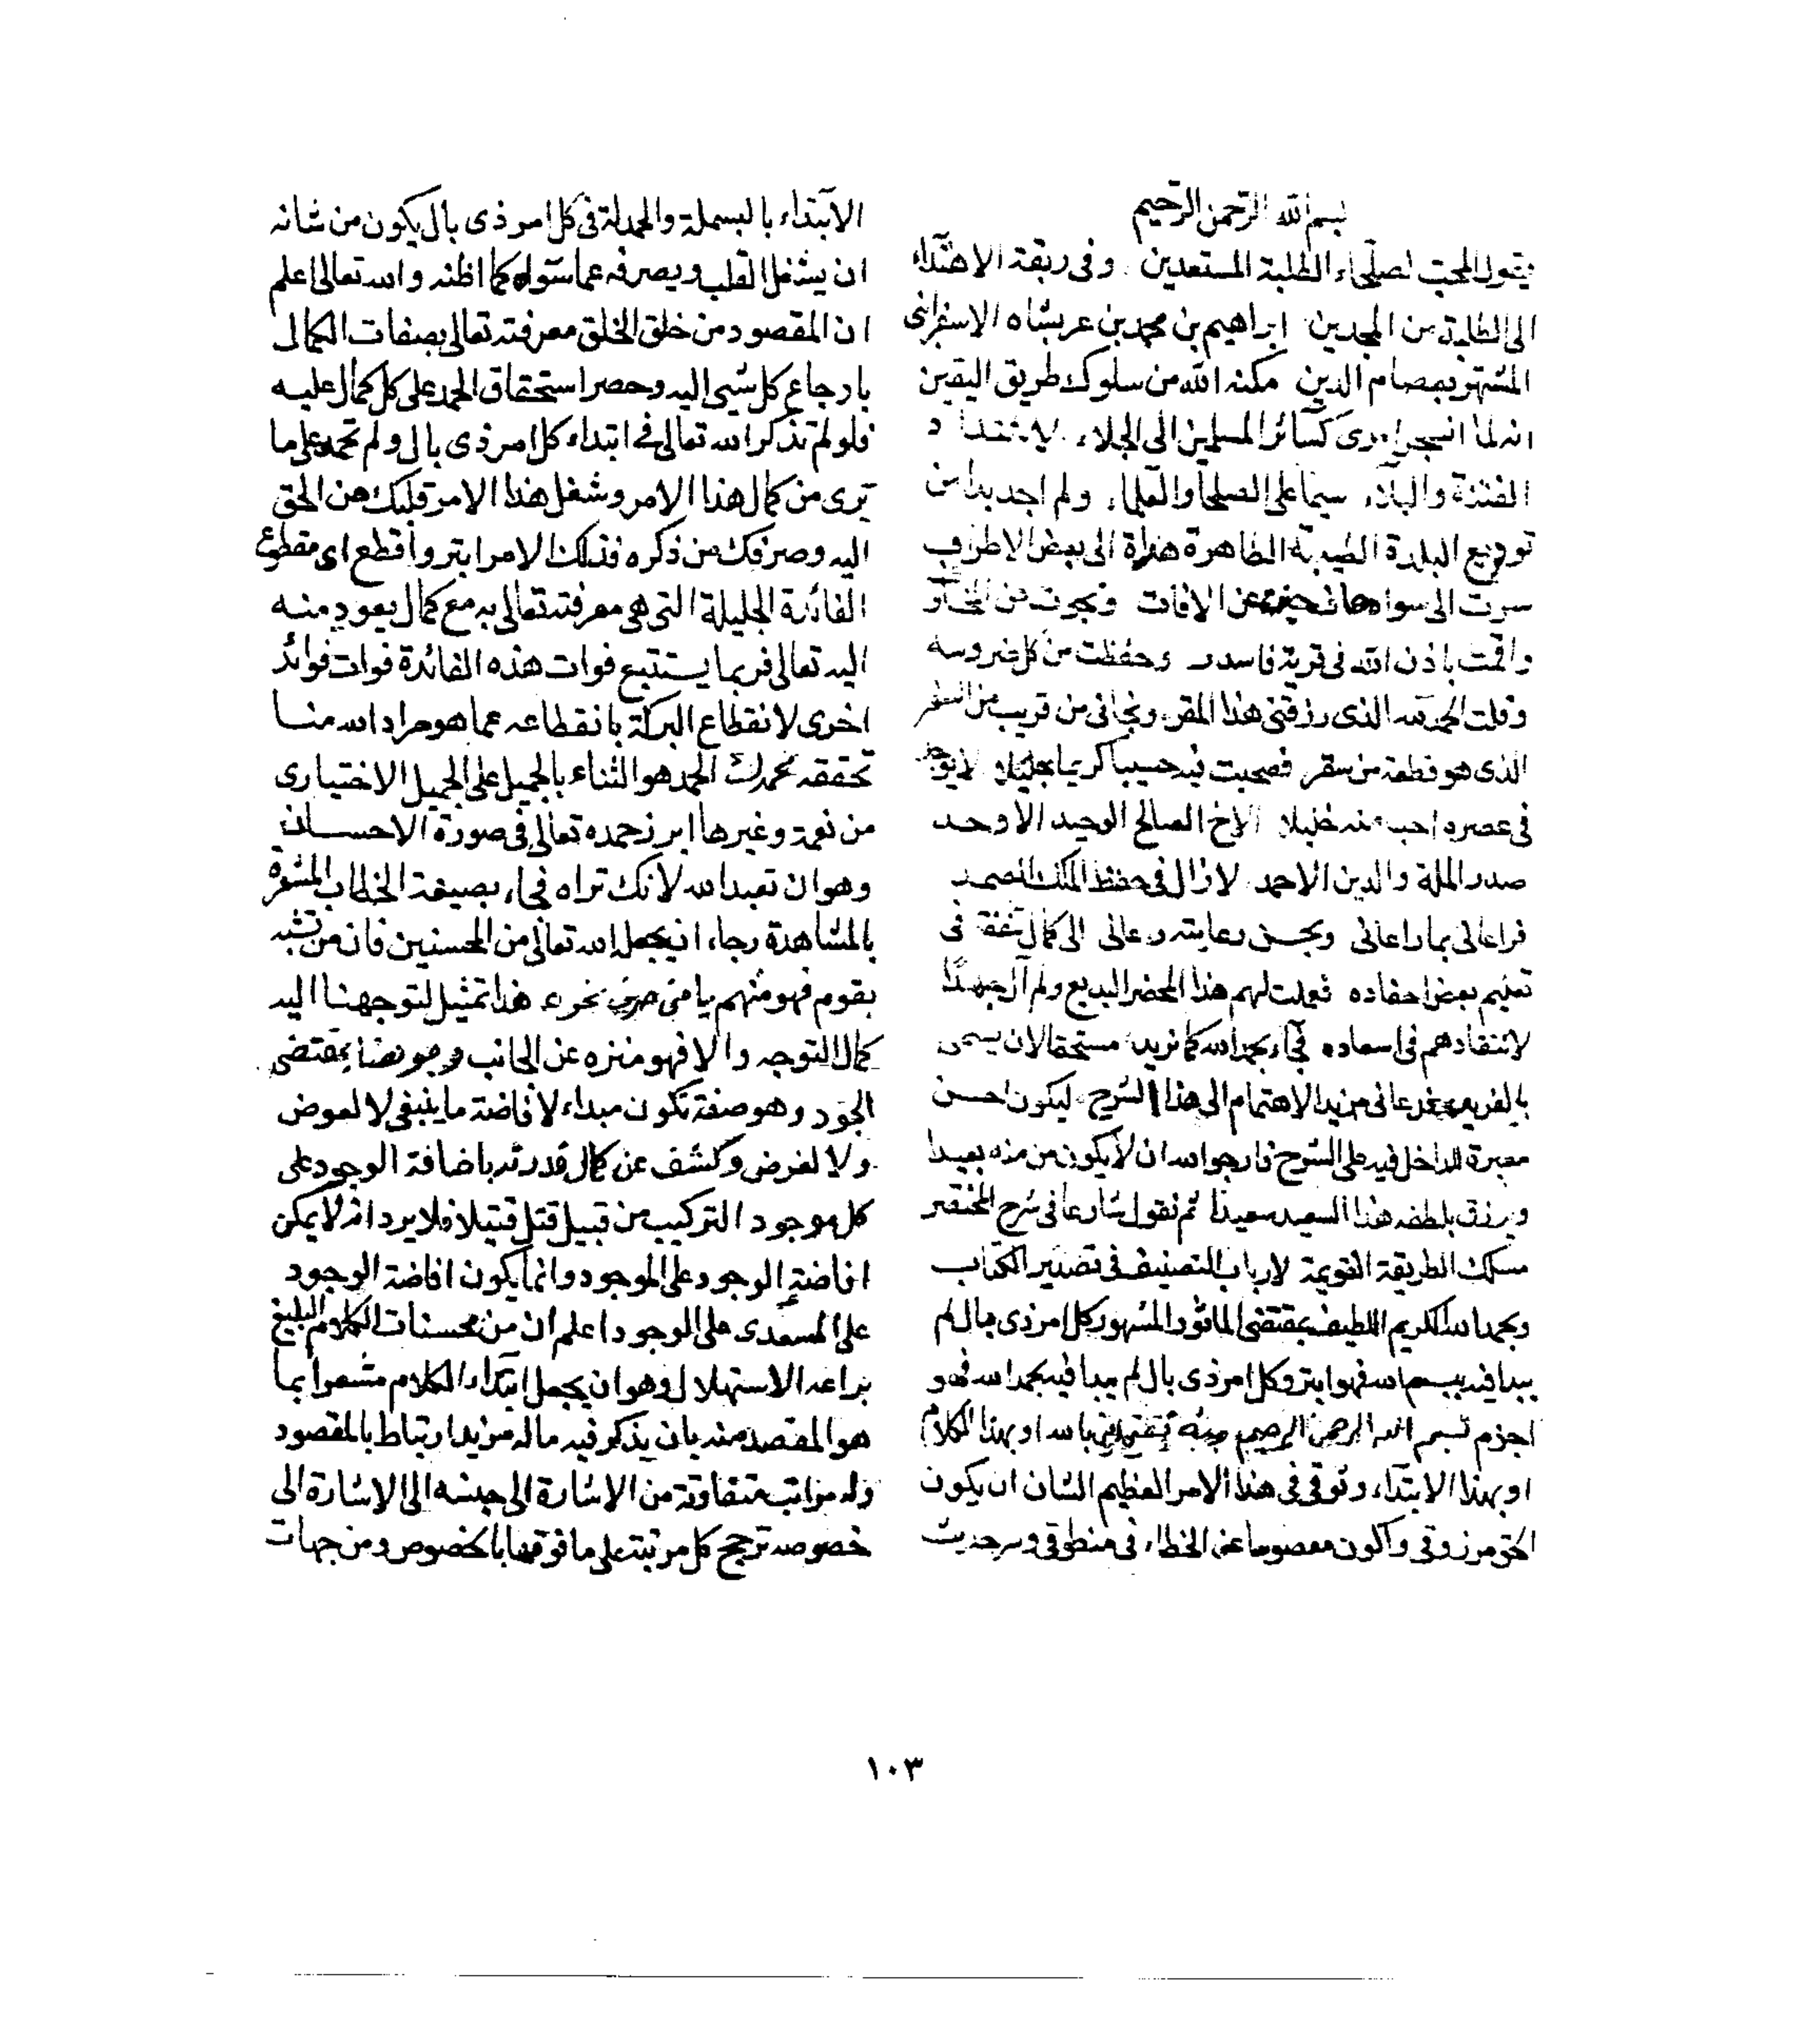 بسم الله الرحمن الرحيم
يقول المحب لصلحاء الطلبة المستعدين وفى ربقة الاهتداء
الى الطلبة من المجدين ابراهيم بن محمد بن عربشاه الاسفراينى
المشتهر بعصام الدين مكنه الله من سلوك طريق اليقين
انه لما انسجل كسائر المسلمين الى الجلاء
الفتنة والبلاء سيما على الصلحا والعلماء ولم اجد بدا من
توديع البلدة الطيبة الطاهرة هراة الى بعض الاطراف
سرت الى سواد عن الافات ونجوت من
واقمت باذن الله فى قرية فاسدر وحفظت من كل
وقلت الحمد لله الذى رزقنى هذا المقر ونجانى من قريب من السفر
الذى هو قطعة من سقر فصحبت فيه حسيبا كريما جليلا لا يوجد
فى عصره احب منه خليلا الاخ الصالح الوحيد الاوحد
صدر الملة والدين الاحمد لا زال فى حفظ الملك الصمد
فراعانى بما راعانى وبحسن رعايته دعانى الى كمال تفقد فى
تعليم بعض احفاده فعلت لهم هذا المحضر البديع ولم آل جهدا
لانتقادهم فى اسعاده فجاء بحمد الله كما نريد مستحقا لان يسمى
بالفريد فدعانى مزيد الاهتمام الى هذا الشرح ليكون احسن
معبرة للداخل فيه على الشروح فارجوا الله ان لا يكون من منه بعيدا
ويرزق بلطفه هذا السعيد سعيدا ثم نقول شارعا فى شرح المختصر
مسلك الطريقة القويمة لارباب التصنيف فى تصدير الكتاب
وبحمد الله الكريم اللطيف بمقتضى الماثور المشهور كل امر ذى بال لم
يبدا فيه ببسم الله فهو ابتر وكل امر ذى بال لم يبدا فيه بحمد الله فهو
اجزم بسم الله الرحمن الرحيم بالله او بهذا الكلام
او بهذا الابتداء وتوقى فى هذا الامر العظيم الشان ان يكون
الحق مرزوقى واكون معصوما عن الخطاء فى منطوقى وسر حديث
الابتداء بالبسملة والحمدلة فى كل امر ذى بال يكون من شانه
ان يشغل القلب ويصرفه عما سواه كما اظنه والله تعالى اعلم
ان المقصود من خلق الخلق معرفته تعالى بصفات الكمال
بارجاع كل شىء اليه وحصر استحقاق الحمد على كل كمال عليه
فلو لم تذكر الله تعالى فى ابتداء كل امر ذى بال ولم تحمد على ما
ترى من كمال هذا الامر وشغل هذا الامر قلبك عن الحق
اليه وصرفك من ذكره فذلك الامر ابتر واقطع اى مقطوع
الفائدة الجليلة التى هى معرفته تعالى به مع كمال يعود منه
اليه تعالى فربما يستتبع فوات هذه الفائدة فوات فوائد
اخرى لانقطاع البركة بانقطاعه عما هو مراد الله منا
تحققه نحمدك الحمد هو الثناء بالجميل على الجميل الاختيارى
من نعمة وغيرها ابرز حمده تعالى فى صورة الاحسان
وهو ان تعبد الله كانك تراه فجاء بصيغة الخطاب المشعرة
بالمشاهدة رجاء ان يجعل الله تعالى من المحسنين فان من تشبه
بقوم فهو منهم يا من نحوه هذا تمثيل لتوجهنا اليه
كمال التوجه والا فهو منزه عن الجانب بمقتضى
الجود وهو صفة تكون مبداء لافاضة ما ينبغى لا لعوض
ولا لغرض وكشف عن كمال قدرته باضافة الوجود على
كل موجود التركيب من قبيل قتل قتيلا فلا يرد انه لا يمكن
افاضة الوجود على الموجود وانما يكون افاضة الوجود
على المسعدى على الوجود اعلم ان من محسنات الكلام البليغ
براعه الاستهلال وهو ان يجعل ابتداء الكلام مشعرا بما
هو المقصد منه بان يذكر فيه ماله مزيد ارتباط بالمقصود
وله مراتب متفاوتة من الاشارة الى جنسه الى الاشارة الى
خصوصه ترجح كل مرتبة على ما فوقها بالخصوص ومن جهات
١٠٣